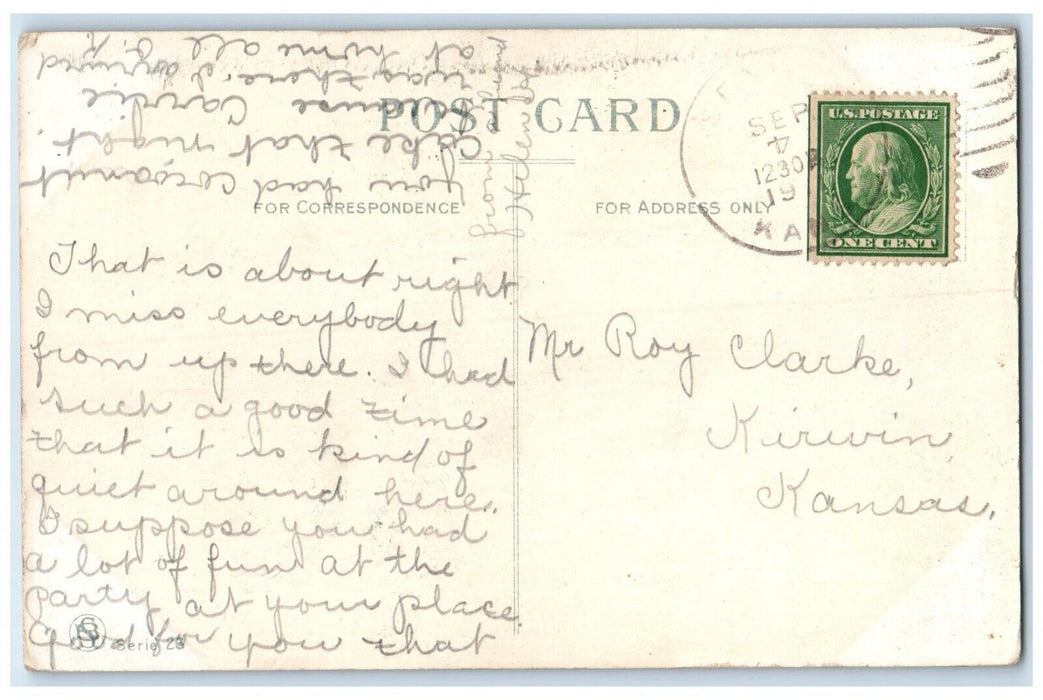 POST CARD
FOR CORRESPONDENCE
FOR ADDRESS ONLY
U.S. POSTAGE
ONE CENT
SEP
7
1230P
19
KAN
That is about right
I miss everybody
from up there. I had
such a good time
that it is kind of
quiet around here.
I suppose you had
a lot of fun at the
party at your place
Good for you that
you had cocoanut
cake that night
cause Carrie
was there, I arrived
at home all O.K.
from
Helen
Mr Roy Clarke,
Kirwin,
Kansas,
SB
Serie 23